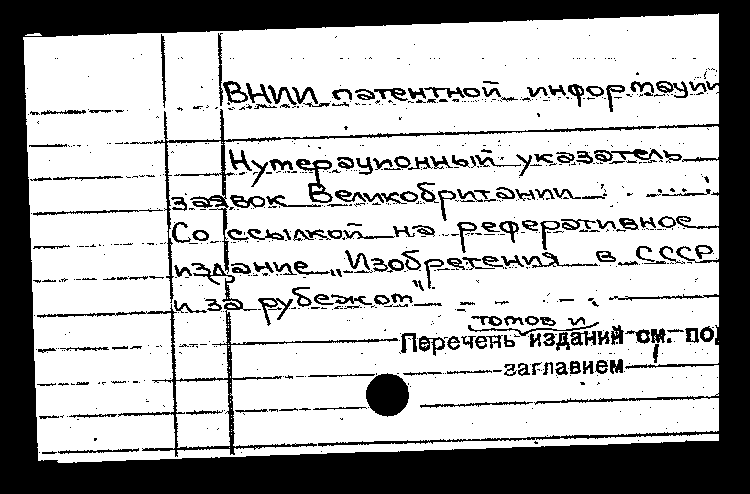 ВНИИ патентной информации
Нумерационный указатель
заявок Великобритании : . ... :
Со ссылкой на реферативное
издание „Изобретения в СССР
и за рубежом"
томов и
Перечень изданий см. под
заглавием